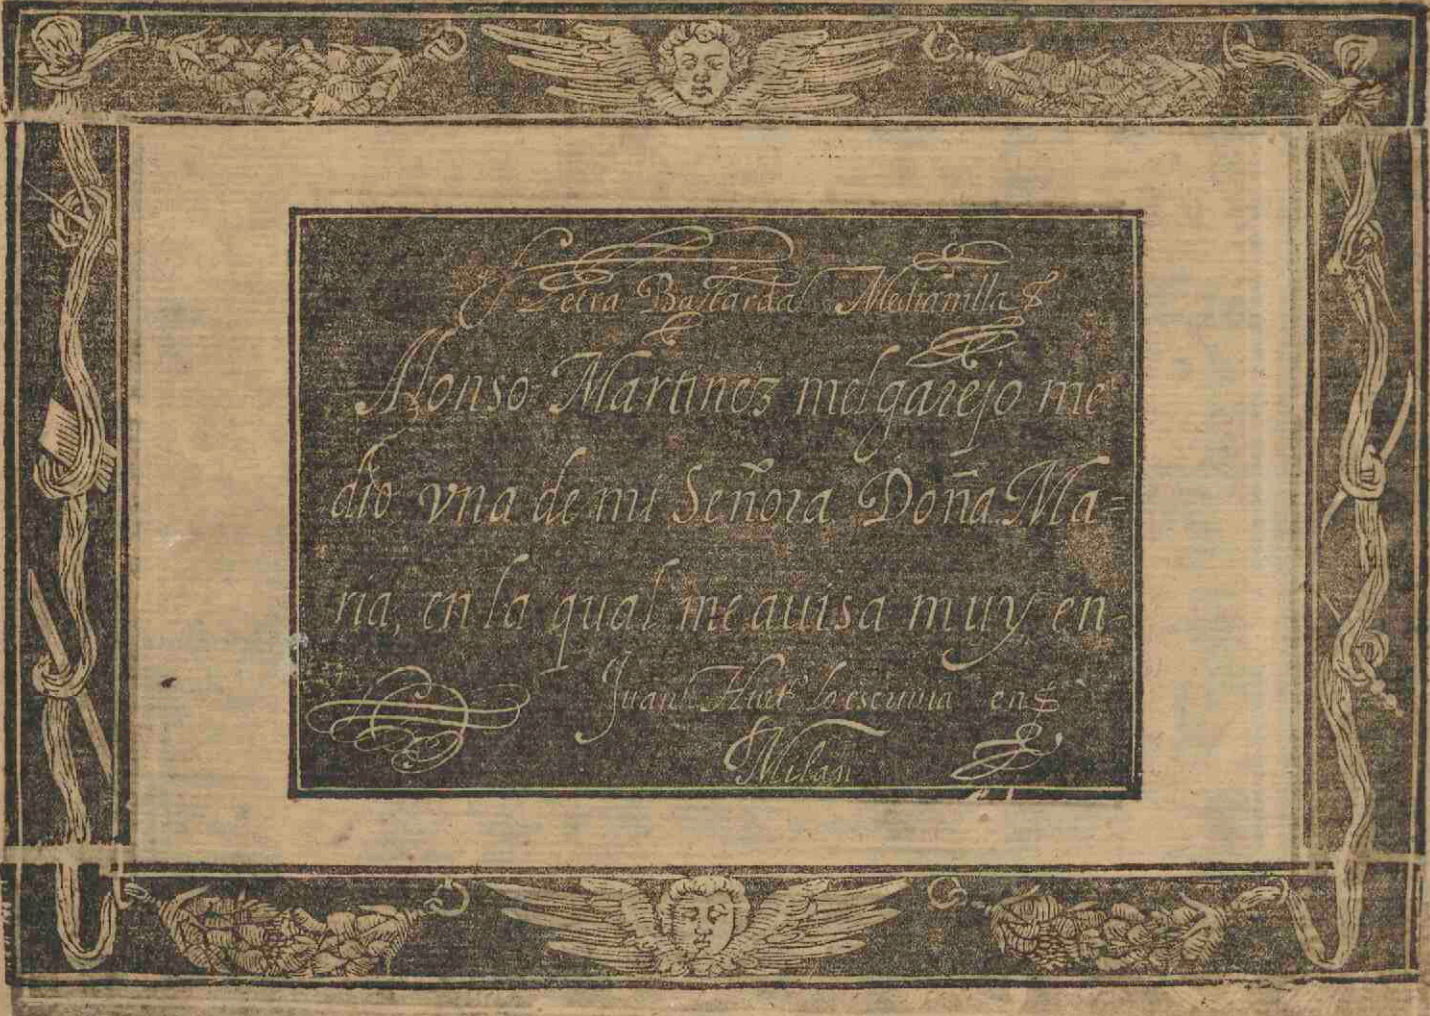 Letra Bastarda Medianilla
Alonso Martinez melgarejo me
dio vna de mi Señora Doña Ma=
ria, en la qual me auisa muy, en-
Juan lo escriuia en
Milan